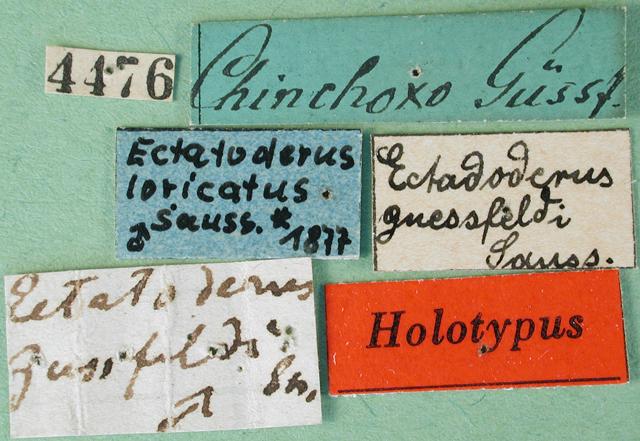 4476
Chinchoxo Güssf.
Ectatoderus
loricatus
♂ Sauss.*
1877
Ectadoderus
guessfeldi
Sauss.
Ectatoderus
Gussfeldi
♂ Ss.
Holotypus